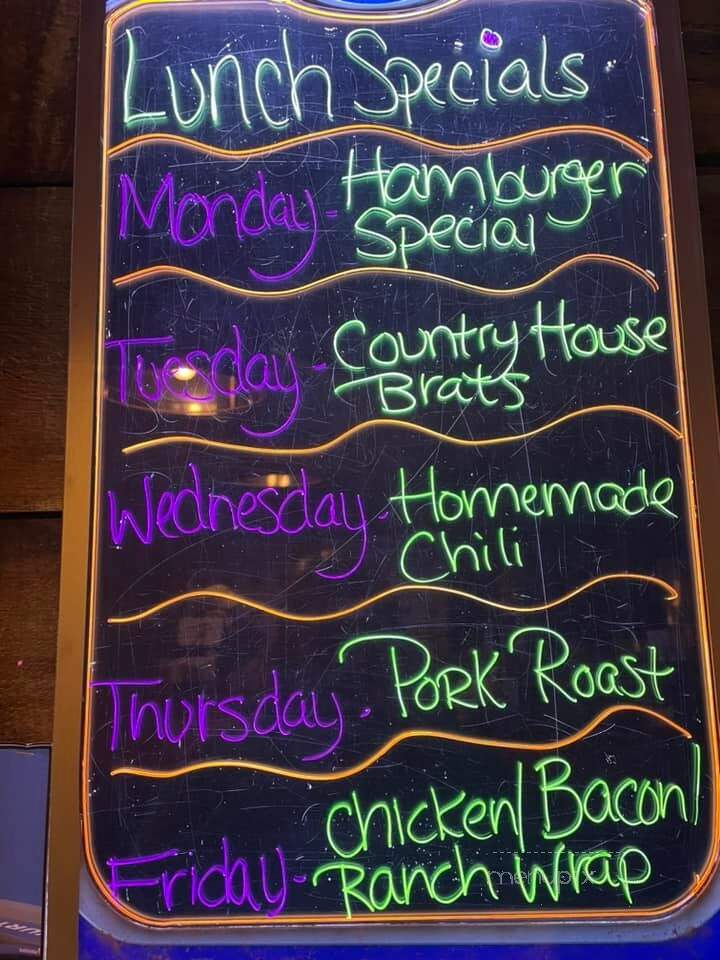 Lunch Specials
Monday - Hamburger
Special
Tuesday - Country House
Brats
Wednesday - Homemade
Chili
Thursday - Pork Roast
Chicken/Bacon/
Friday - Ranch Wrap
menupix